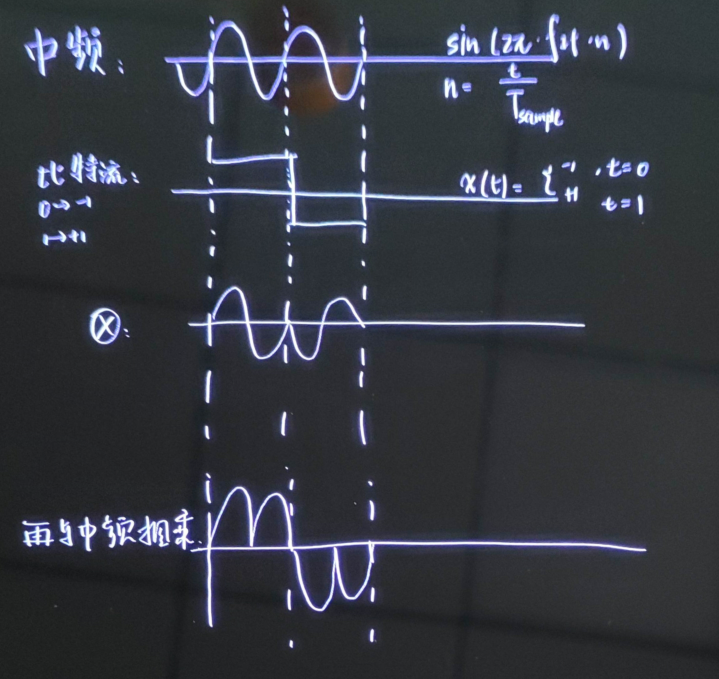 中频：
sin (2π · f对 · n)
n = t / Tsample
比特流：
0→-1
1→+1
x(t) = { -1 , t=0
+1 t=1
⊗：
再与中频相乘